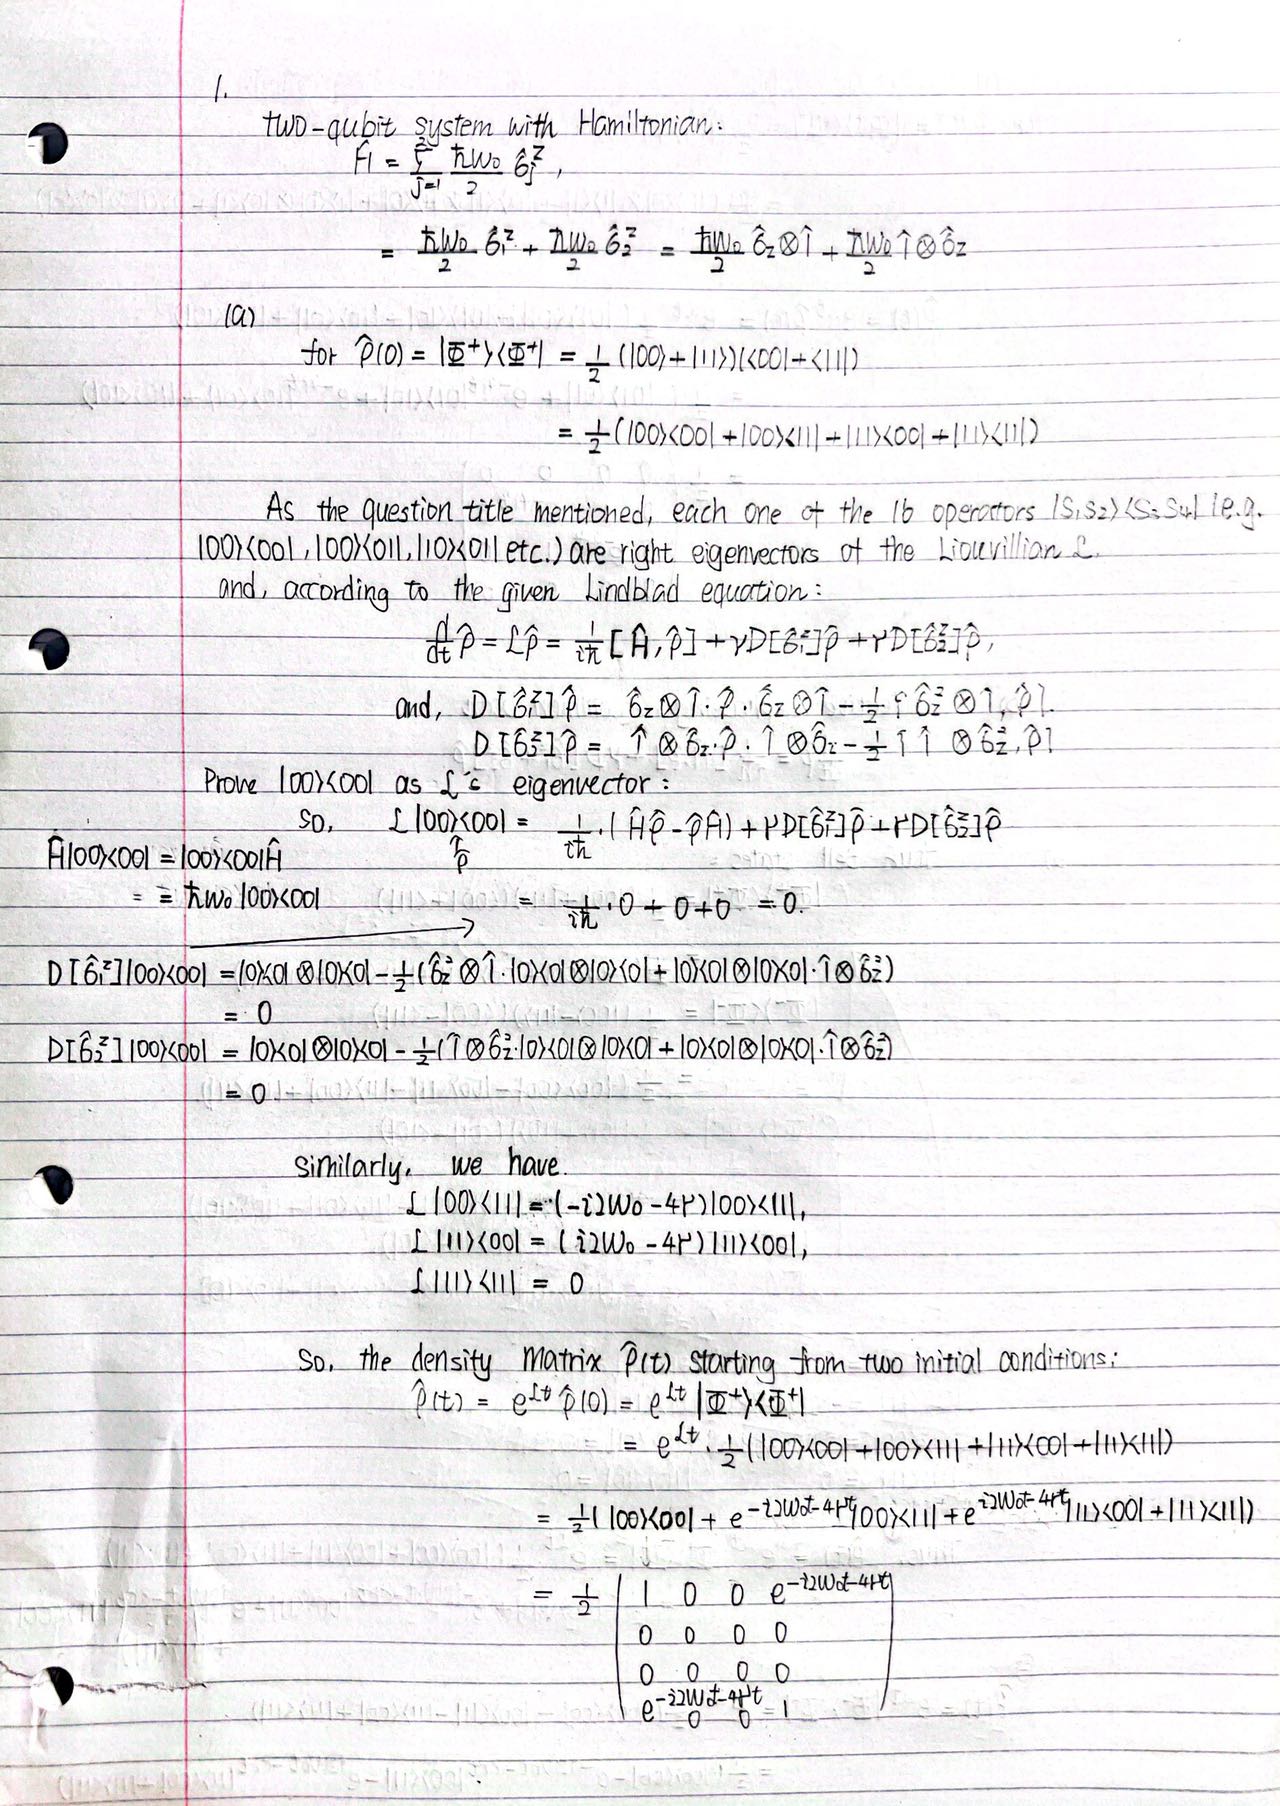 1.
TWO-qubit system with Hamiltonian:
Ĥ = Σ_{j=1}^{2} ħω₀/2 σ̂_j^z,
= ħω₀/2 σ̂₁^z + ħω₀/2 σ̂₂^z = ħω₀/2 σ̂z⊗Î + ħω₀/2 Î⊗σ̂z
(a)
for ρ̂(0) = |Φ⁺><Φ⁺| = 1/2 (|00> + |11>)(<00| + <11|)
= 1/2 (|00><00| + |00><11| + |11><00| + |11><11|)
As the question title mentioned, each one of the 16 operators |S₁S₂><S₃S₄| (e.g.
|00><00|, |00><01|, |10><01| etc.) are right eigenvectors of the Liouvillian L.
and, according to the given Lindblad equation:
d/dt ρ̂ = Lρ̂ = 1/iħ [Ĥ, ρ̂] + γD[σ̂₁^z]ρ̂ + γD[σ̂₂^z]ρ̂,
and, D[σ̂₁^z]ρ̂ = σ̂z⊗Î·ρ̂·σ̂z⊗Î - 1/2 {σ̂z²⊗Î, ρ̂}.
D[σ̂₂^z]ρ̂ = Î⊗σ̂z·ρ̂·Î⊗σ̂z - 1/2 {Î⊗σ̂z², ρ̂}
Prove |00><00| as L's eigenvector:
So, L|00><00| = 1/iħ·(Ĥρ̂ - ρ̂Ĥ) + γD[σ̂₁^z]ρ̂ + γD[σ̂₂^z]ρ̂
↑ρ̂
Ĥ|00><00| = |00><00|Ĥ
= = ħω₀|00><00|
= 1/iħ·0 + 0 + 0 = 0.
D[σ̂₁^z]|00><00| = |0><0|⊗|0><0| - 1/2(σ̂z²⊗Î·|0><0|⊗|0><0| + |0><0|⊗|0><0|·Î⊗σ̂z²)
= 0
D[σ̂₂^z]|00><00| = |0><0|⊗|0><0| - 1/2(Î⊗σ̂z²·|0><0|⊗|0><0| + |0><0|⊗|0><0|·Î⊗σ̂z²)
= 0
Similarly, we have.
L|00><11| = (-i2ω₀ - 4γ)|00><11|,
L|11><00| = (i2ω₀ - 4γ)|11><00|,
L|11><11| = 0
So, the density Matrix ρ̂(t) starting from two initial conditions:
ρ̂(t) = e^{Lt} ρ̂(0) = e^{Lt} |Φ⁺><Φ⁺|
= e^{Lt}·1/2(|00><00| + |00><11| + |11><00| + |11><11|)
= 1/2(|00><00| + e^{-i2ω₀t-4γt}|00><11| + e^{i2ω₀t-4γt}|11><00| + |11><11|)
= 1/2 | 1 0 0 e^{-i2ω₀t-4γt} |
0 0 0 0
0 0 0 0
e^{-i2ω₀t-4γt} 0 0 1